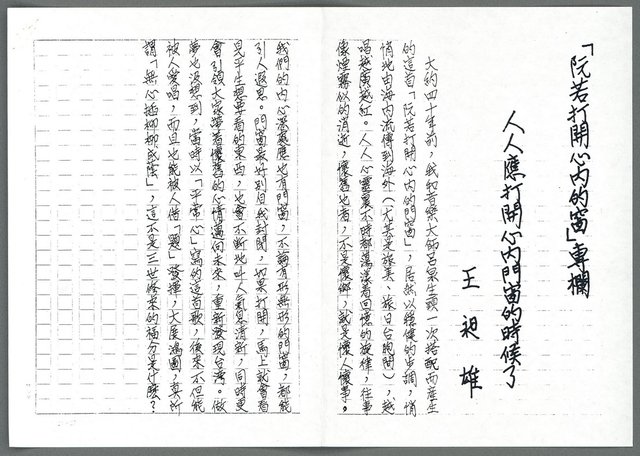 「阮若打開心內的窗」專欄
人人應打開心內門窗的時候了
王昶雄
大約四十年前,我和音樂大師呂泉生頭一次搭配而產生
的這首「阮若打開心內的門窗」,居然以穩健的步調,悄
悄地由海內流傳到海外(尤其是旅美、旅日台胞間),越
唱越廣越紅。人人心靈裏不時都蕩漾着回憶的旋律,往事
像煙霧似的消逝,懷舊也者,不是懷鄉,就是懷人懷事。
我們的內心深處應也有門窗,不論有形無形的門窗,都能
引人遐思。門窗最好別自我封閉,如果打開,馬上就會看
見平生想要看的東西,也會不斷地叫人氣息清新,同時更
會引領大家帶着懷舊的心情邁向未來,重新發現台灣。做
夢也沒想到,當時以「平常心」寫的這首歌,後來不但能
被人愛唱,而且也能被人借「題」發揮,大展鴻圖,莫所
謂「無心插柳柳成蔭」,這不是三世修來的福分是什麼?